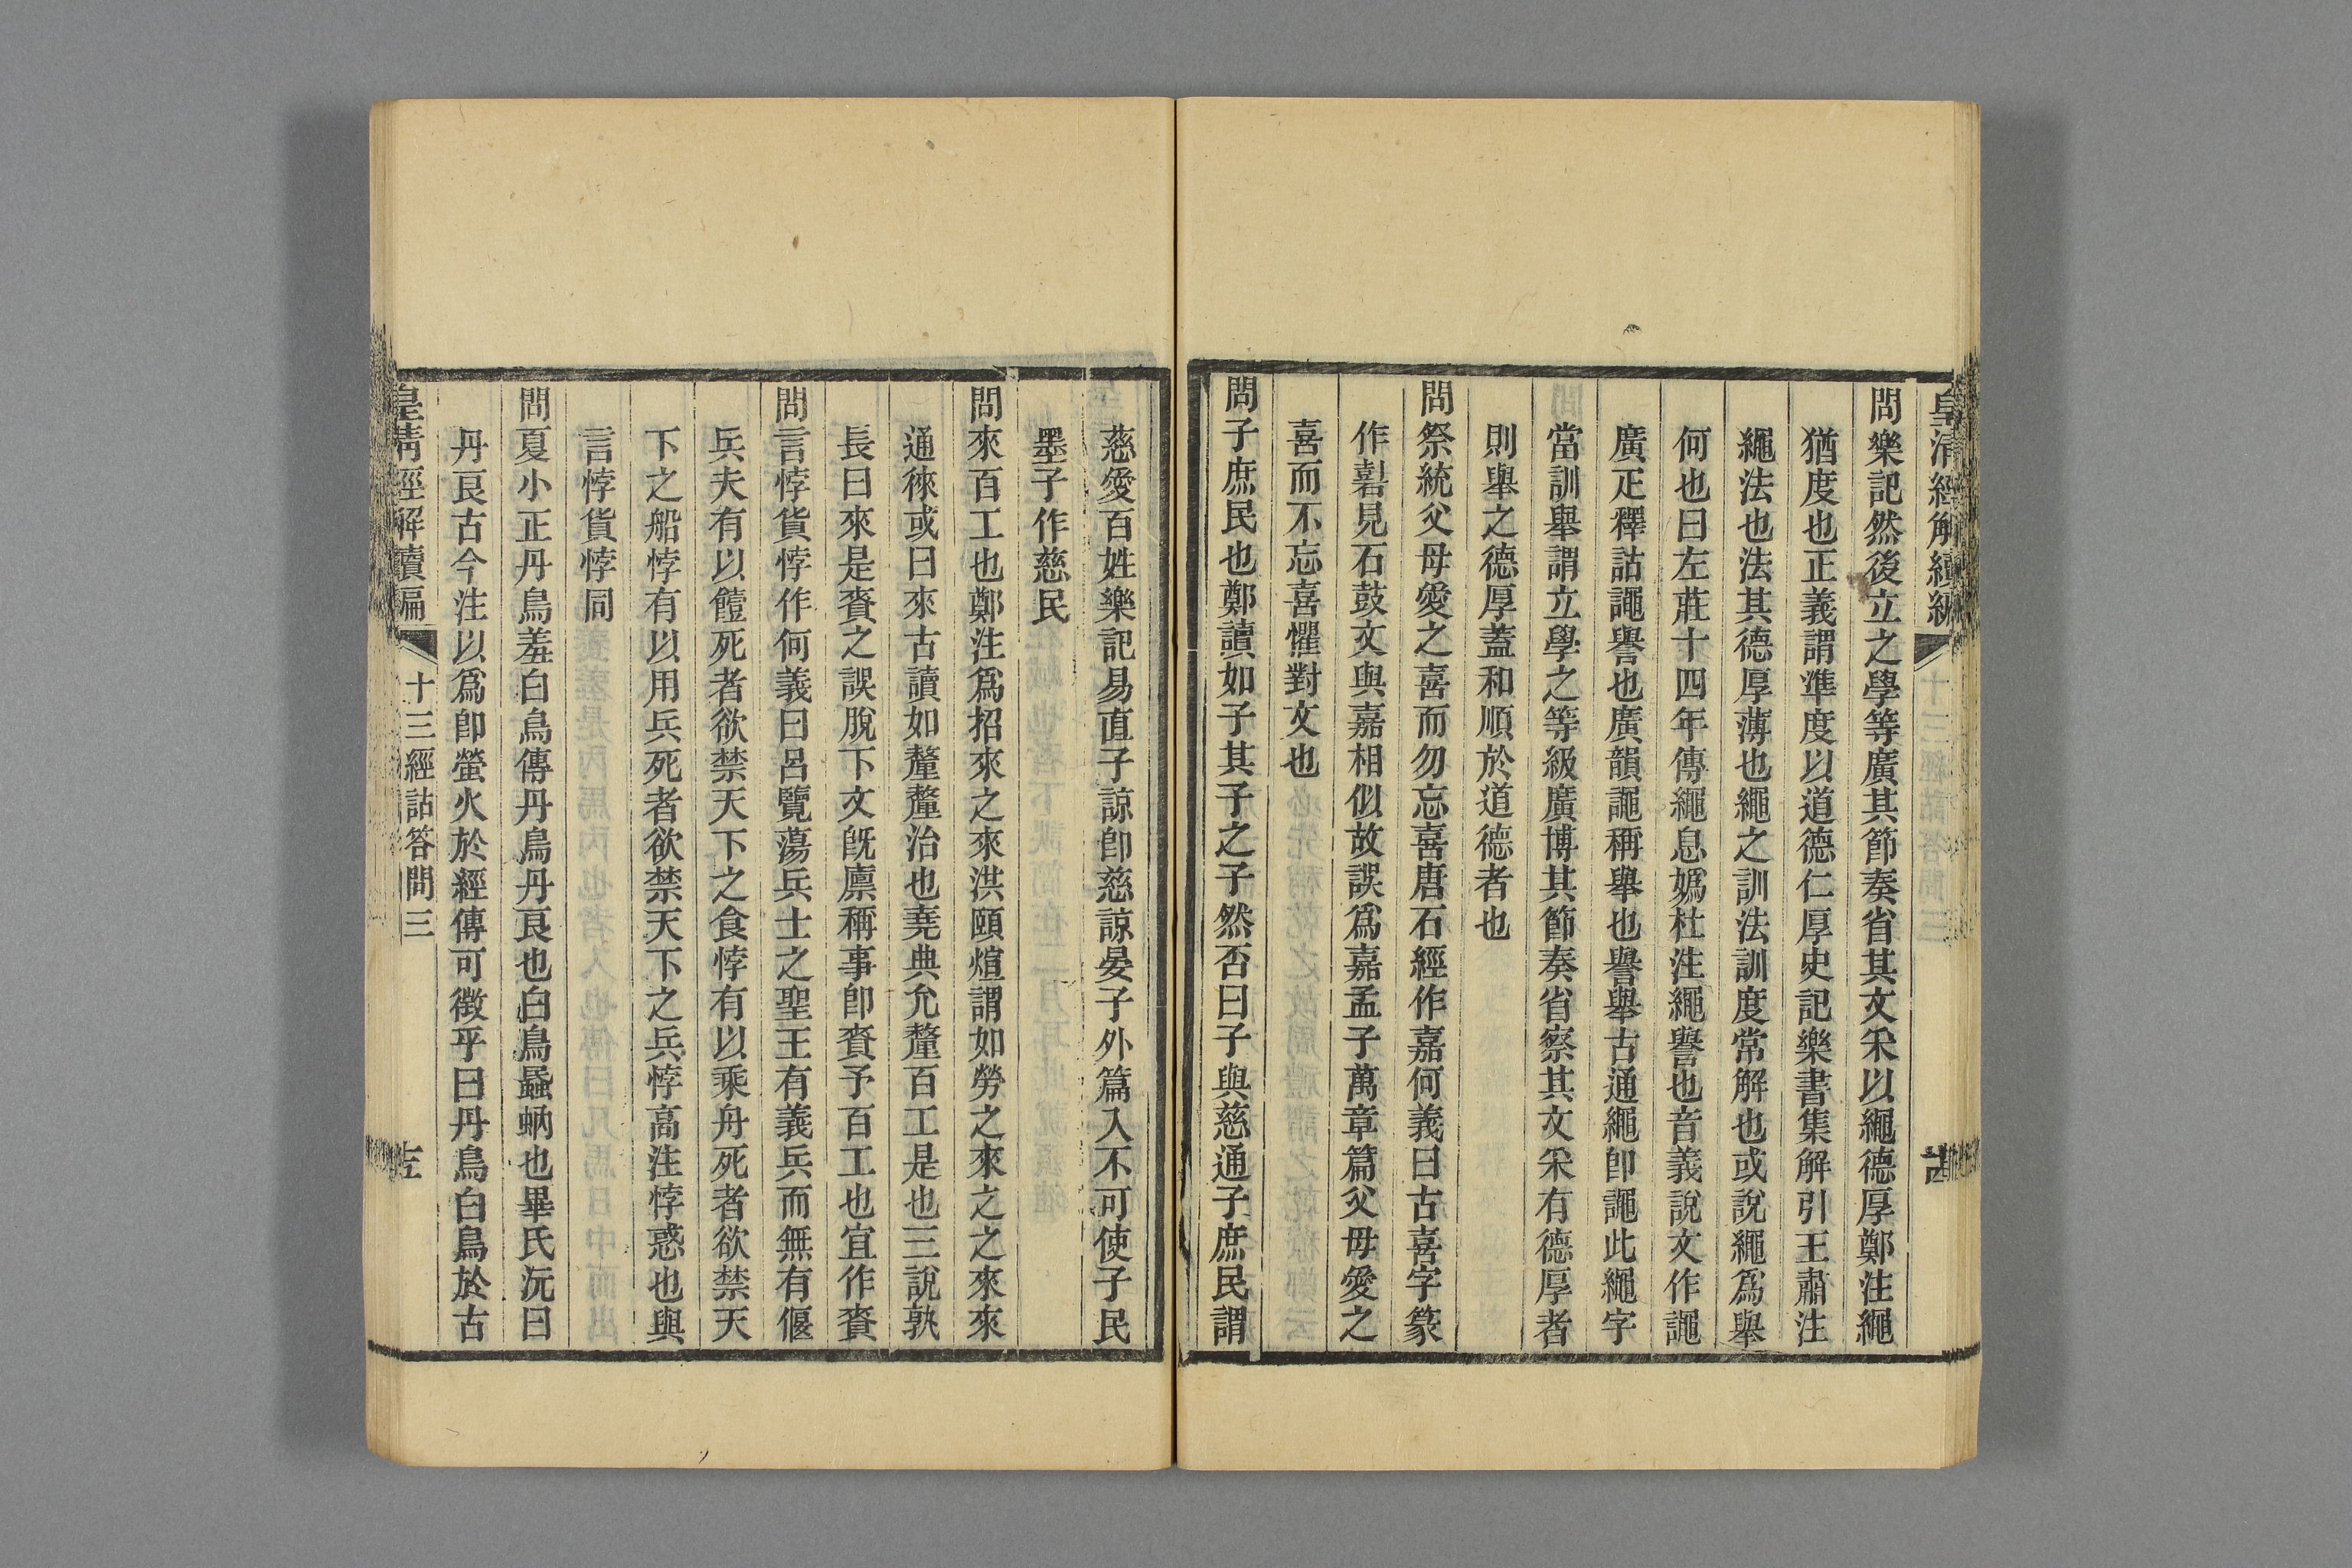 皇清經解續編
問樂記然後立之學等廣其節奏省其文采以繩德厚鄭注繩
猶度也正義謂準度以道德仁厚史記樂書集解引王肅注
繩法也法其德厚薄也繩之訓法訓度常解也或說繩爲舉
何也曰左莊十四年傳繩息嬀杜注繩譽也音義說文作譝
廣疋釋詁譝譽也廣韻譝稱舉也譽舉古通繩卽譝此繩字
當訓舉謂立學之等級廣博其節奏省察其文采有德厚者
則舉之德厚蓋和順於道德者也
問祭統父母愛之喜而勿忘喜唐石經作嘉何義曰古喜字篆
作嚞見石鼓文與嘉相似故誤爲嘉孟子萬章篇父母愛之
喜而不忘喜懼對文也
問子庶民也鄭讀如子其子之子然否曰子與慈通子庶民謂
慈愛百姓樂記易直子諒卽慈諒晏子外篇入不可使子民
墨子作慈民
問來百工也鄭注爲招來之來洪頤煊謂如勞之來之之來來
通徠或曰來古讀如釐釐治也堯典允釐百工是也三說孰
長曰來是賚之誤脫下文旣廩稱事卽賚予百工也宜作賚
問言悖貨悖作何義曰呂覽蕩兵士之聖王有義兵而無有偃
兵夫有以饐死者欲禁天下之食悖有以乘舟死者欲禁天
下之船悖有以用兵死者欲禁天下之兵悖高注悖惑也與
言悖貨悖同
問夏小正丹鳥羞白鳥傳丹鳥丹良也白鳥蟁蚋也畢氏沅曰
丹良古今注以爲卽螢火於經傳可徵乎曰丹鳥白鳥於古
皇淸經解續編
十三經詁答問三